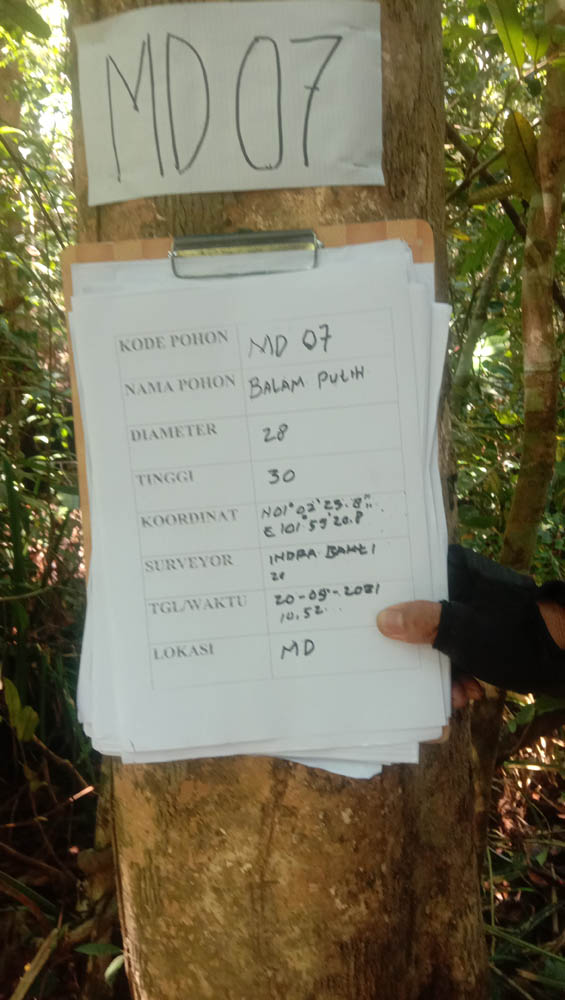 MD 07
KODE POHON MD 07
NAMA POHON BALAM PUTIH
DIAMETER 28
TINGGI 30
KOORDINAT N01°02'23.8"
E 101°59'20.8
SURVEYOR INDRA
TGL/WAKTU 20-09-2021
10.52
LOKASI MD